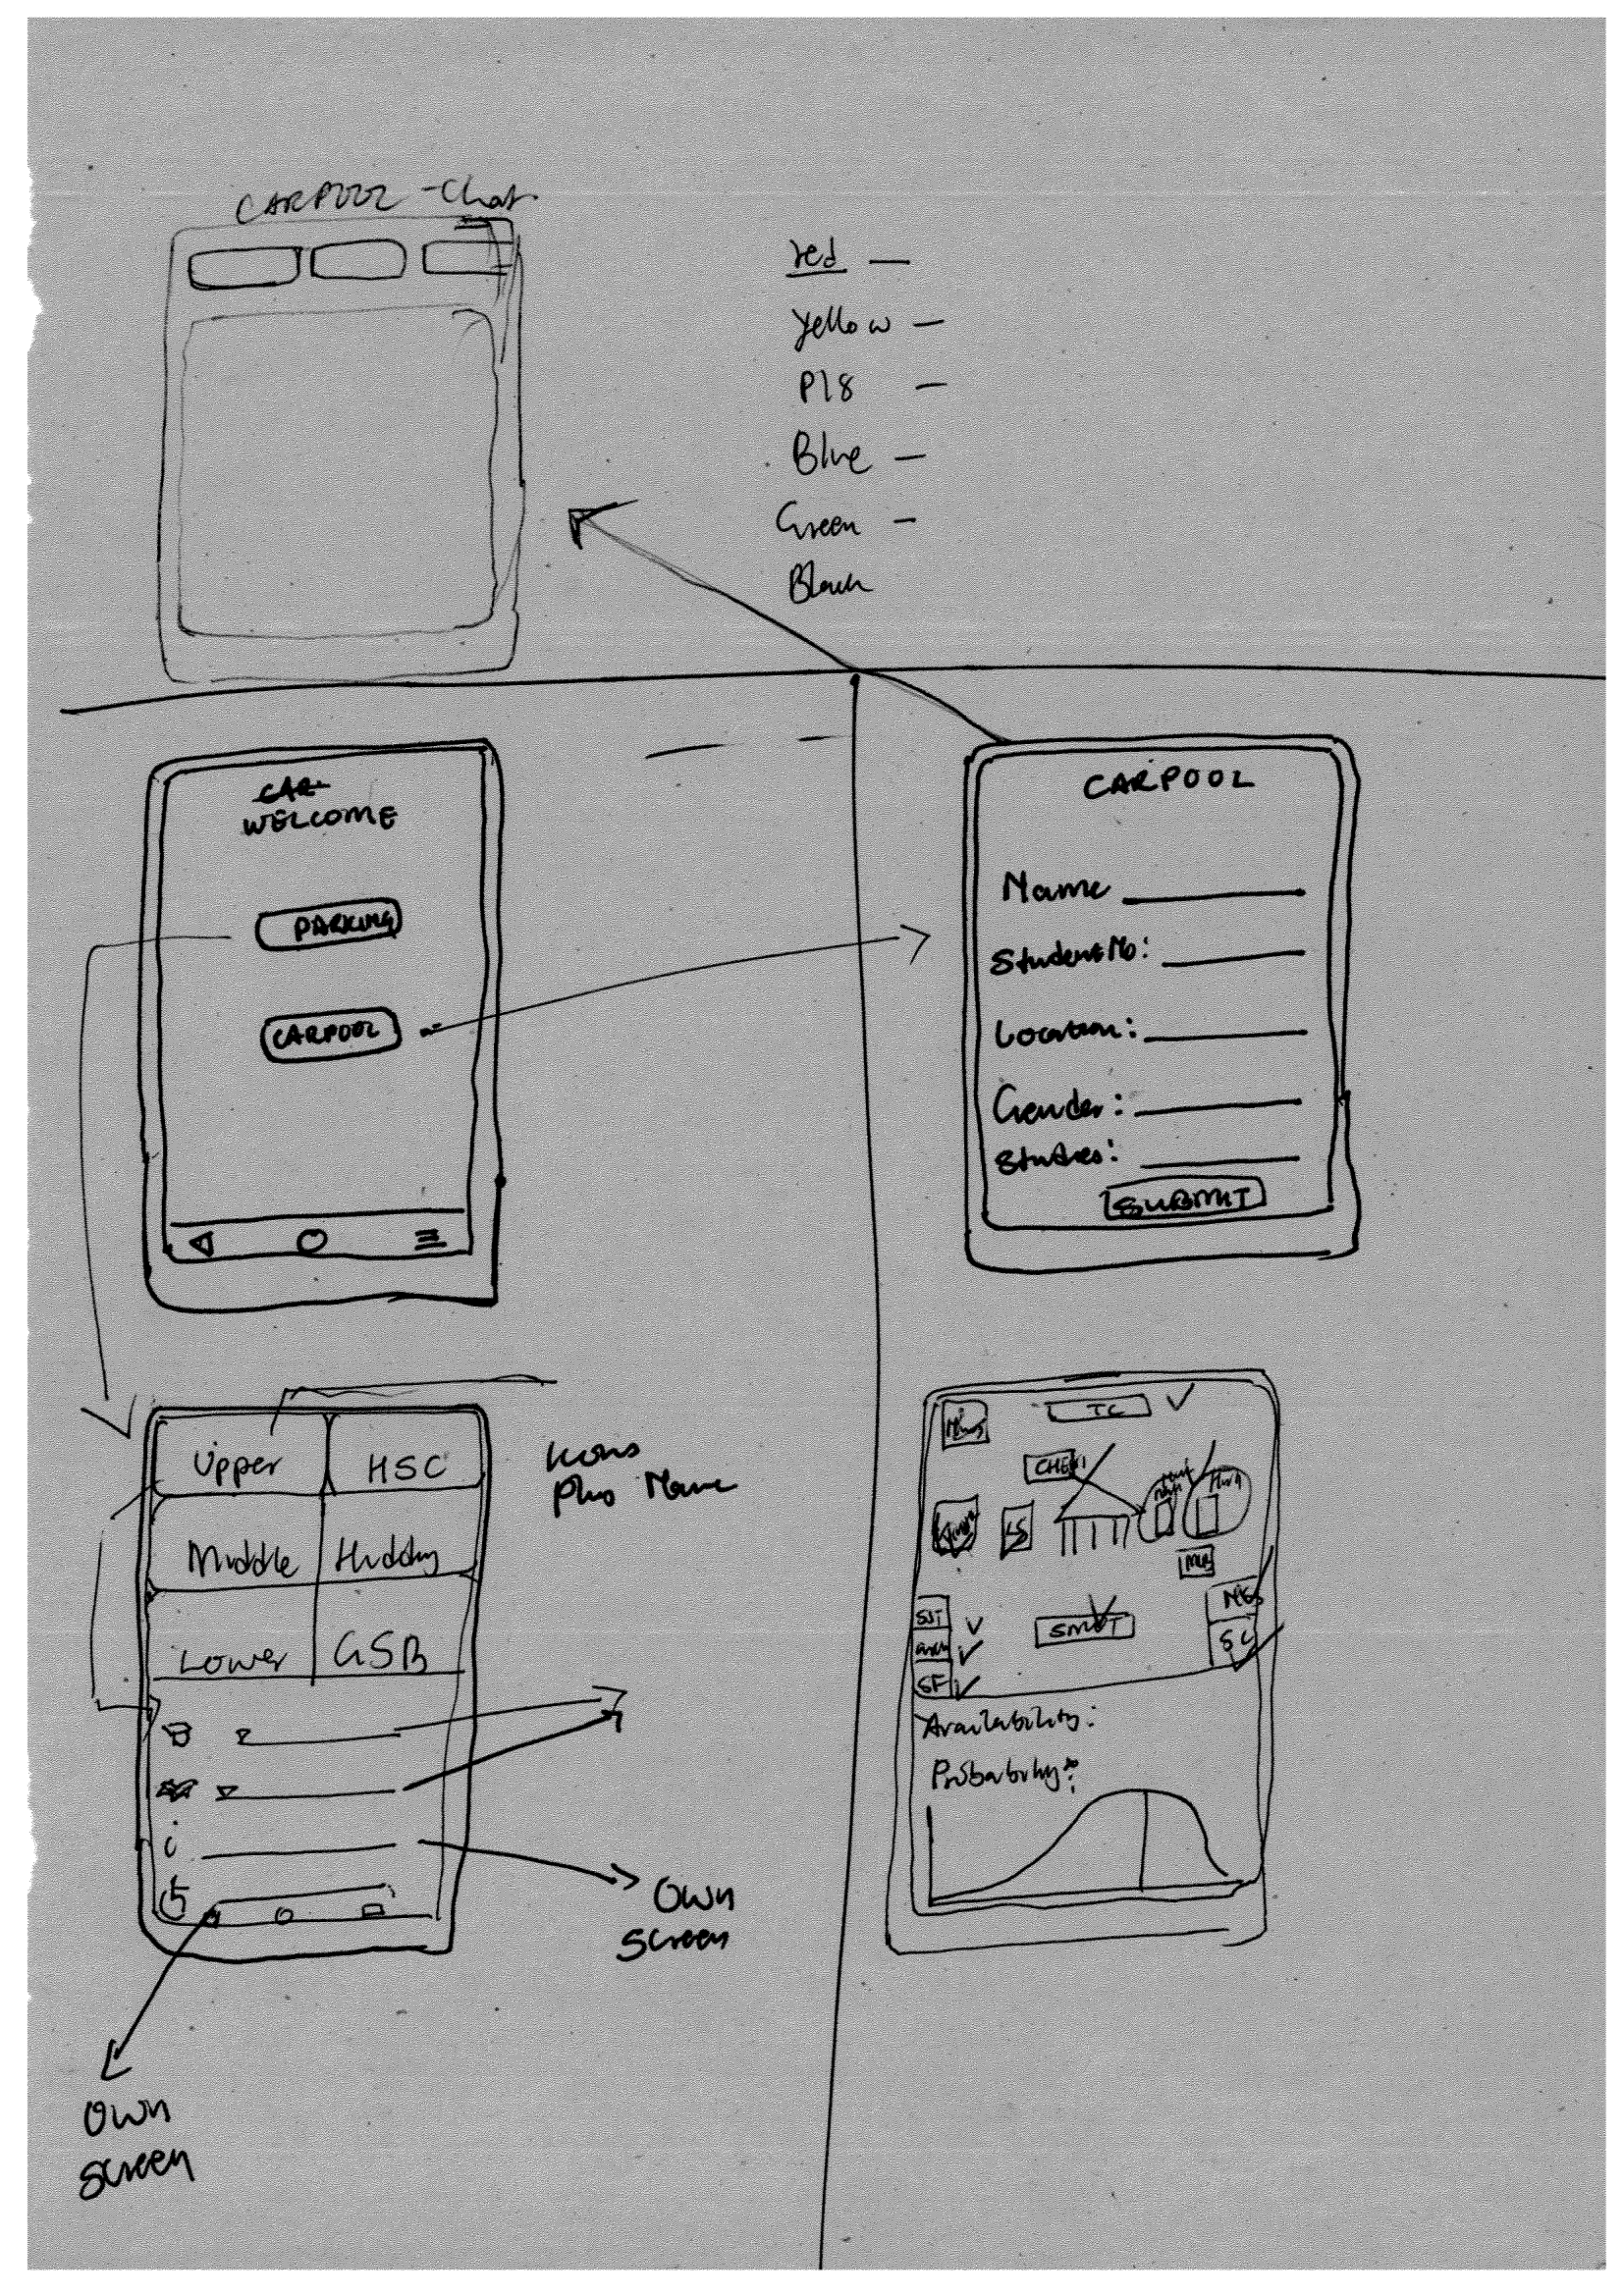 CARPOOL - Chat
red —
Yellow —
P18 —
Blue —
Green —
Black
CAR
WELCOME
PARKING
CARPOOL
CARPOOL
Name
Student No:
Location:
Gender:
Studies:
SUBMIT
Upper
HSC
Middle
Hiddingh
Lower
GSB
Icons
Plus Name
Own
Screen
Own
Screen
TC
CHEM
LS
SMUTS
NES
SC
SF
Availability:
Probability: